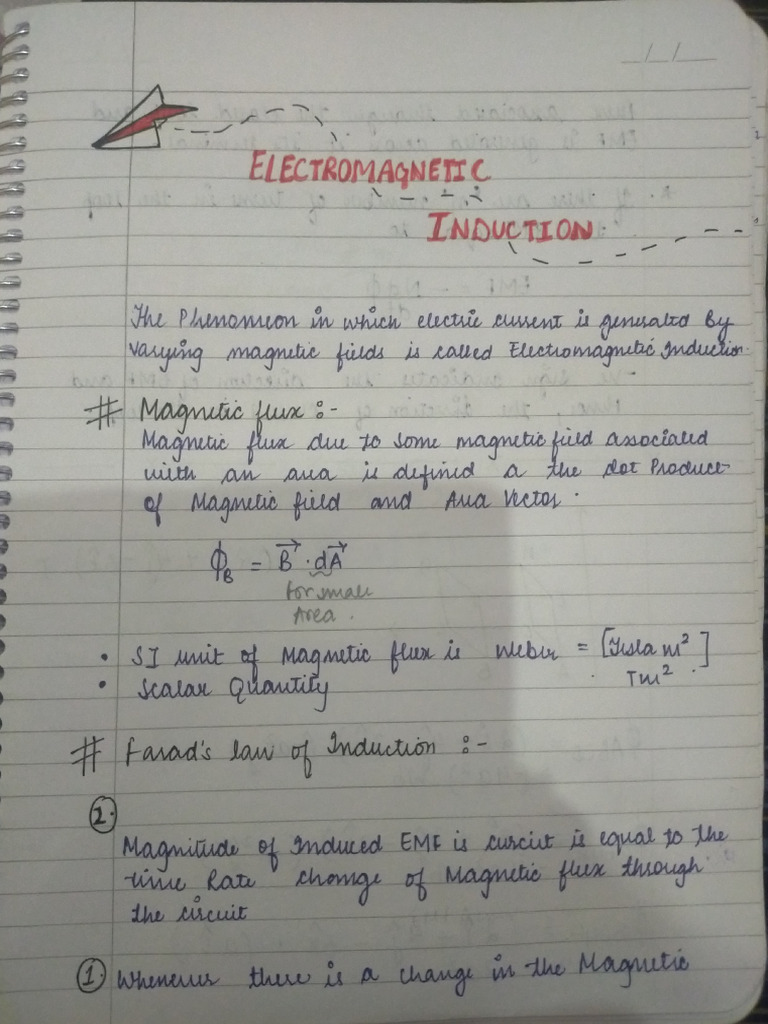 _/_/_
ELECTROMAGNETIC
INDUCTION
The Phenomeon in which electric current is generated by
varying magnetic fields is called Electromagnetic Induction.
# Magnetic flux :-
Magnetic flux due to some magnetic field associated
with an area is defined a the dot Product
of Magnetic field and Area Vector.
ϕ_B = B⃗ · dA⃗
for small
Area.
• SI unit of Magnetic flux is Weber = [Tesla m²]
Tm².
• Scalar Quantity
# Farad's law of Induction :-
2.
Magnitude of Induced EMF is curcuit is equal to the
time Rate change of Magnetic flux through
the circuit
1. Whenever there is a change in the Magnetic